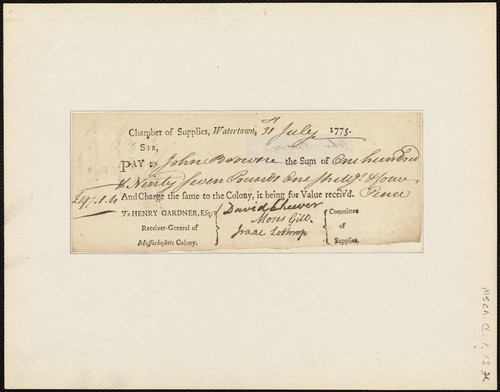 Chamber of Supplies, Watertown, 31 July 1775.
SIR,
PAY to John Browne the Sum of One hundred
& Ninty Seven Pounds One shillg. & four
£197.1.4 And Charge the same to the Colony, it being for Value receiv'd. Pence
To HENRY GARDNER, Esq; David Cheever
Receiver-General of Moses Gill. Committee of Supplies.
Massachusetts Colony. Isaac Lothrop